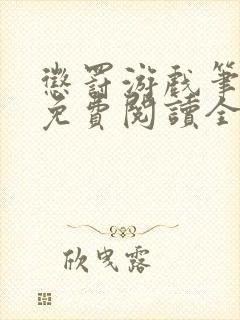 懲罰游戲筆
免費閱讀全
欣曳露